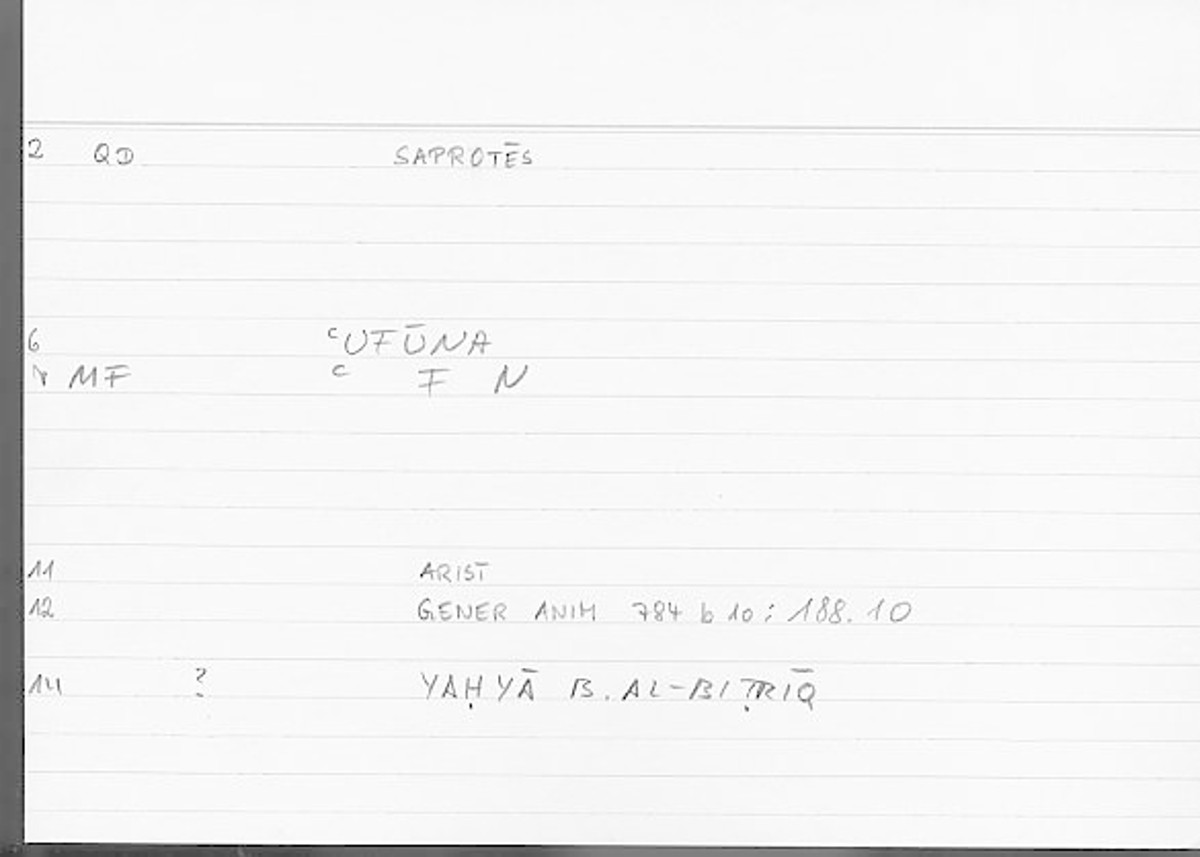 2 QD SAPROTĒS
6 ʿUFŪNA
MF ʿ F N
11 ARIST
12 GENER ANIM 784 b 10 ; 188.10
14 ? YAḤYĀ B. AL-BIṬRĪQ